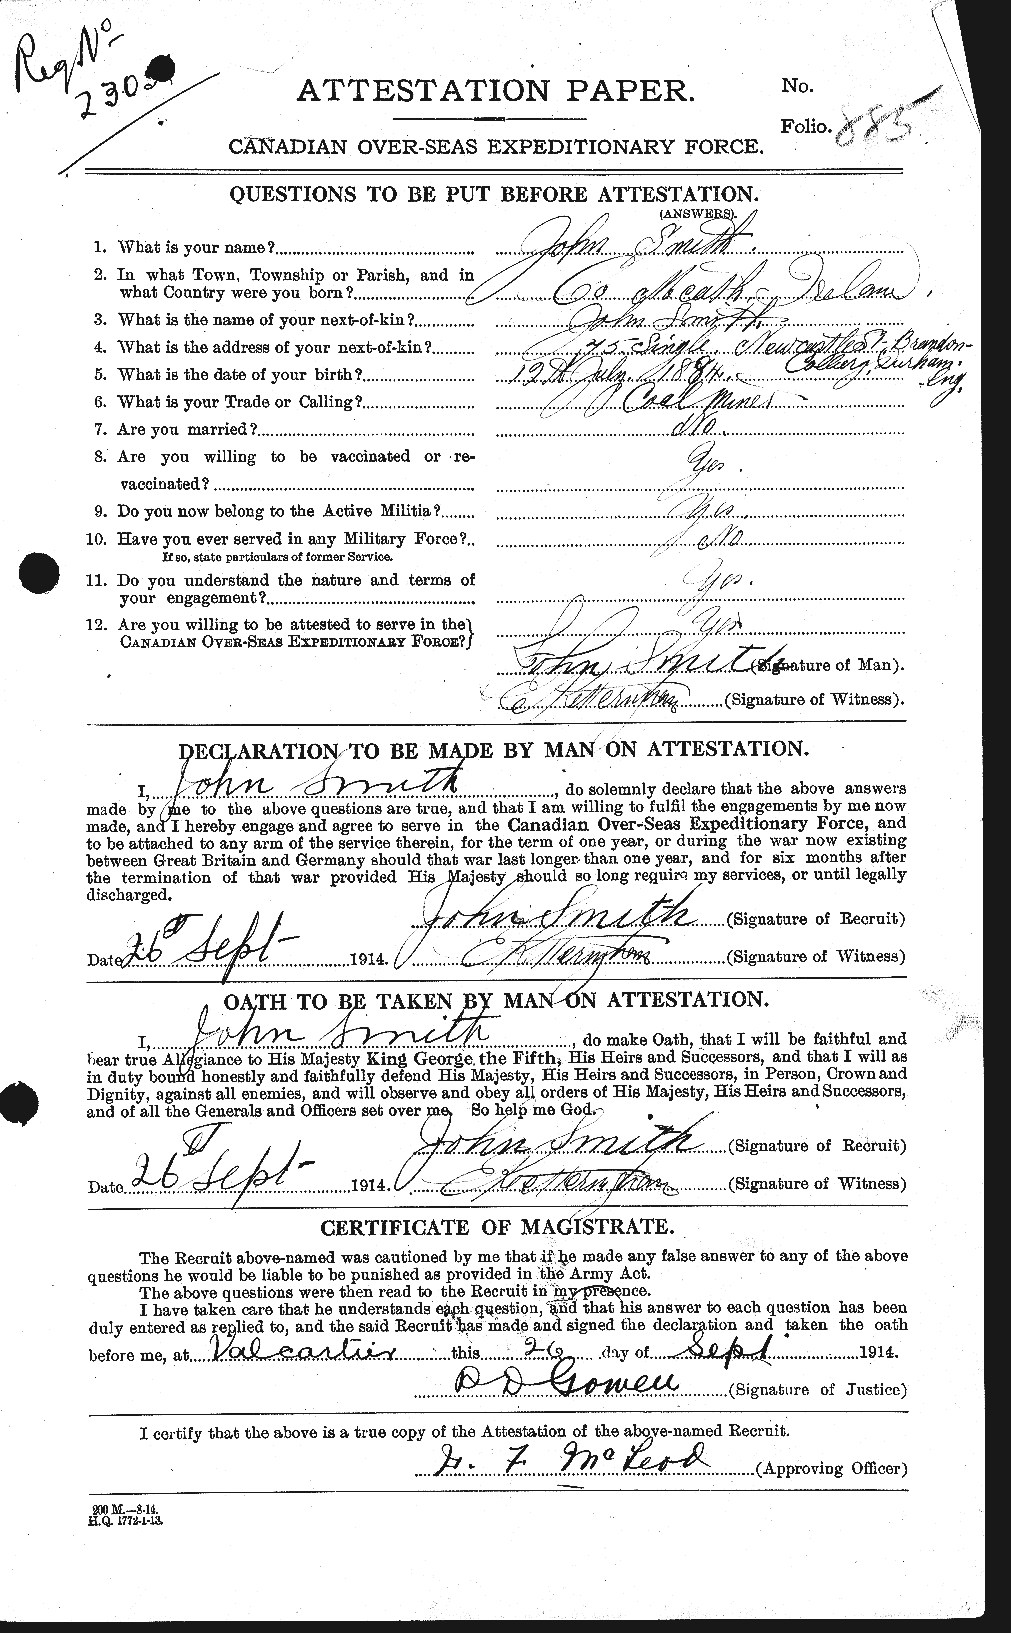 Reg No
2305
ATTESTATION PAPER.
No.
Folio. 885
CANADIAN OVER-SEAS EXPEDITIONARY FORCE.
QUESTIONS TO BE PUT BEFORE ATTESTATION.
(ANSWERS).
1. What is your name? John Smith.
2. In what Town, Township or Parish, and in
what Country were you born? Co Meath - Ireland.
3. What is the name of your next-of-kin? John Smith.
4. What is the address of your next-of-kin? 75 Single Newcastle St, Brandon-
Colliery, Durham.
Eng.
5. What is the date of your birth? 12th July. 1884.
6. What is your Trade or Calling? Coal Miner -
7. Are you married? No.
8. Are you willing to be vaccinated or re-
vaccinated? Yes.
9. Do you now belong to the Active Militia? Yes.
10. Have you ever served in any Military Force? No
If so, state particulars of former Service.
11. Do you understand the nature and terms of
your engagement? Yes.
12. Are you willing to be attested to serve in the
CANADIAN OVER-SEAS EXPEDITIONARY FORCE? Yes
John Smith (Signature of Man).
(Signature of Witness).
DECLARATION TO BE MADE BY MAN ON ATTESTATION.
I, John Smith, do solemnly declare that the above answers
made by me to the above questions are true, and that I am willing to fulfil the engagements by me now
made, and I hereby engage and agree to serve in the Canadian Over-Seas Expeditionary Force, and
to be attached to any arm of the service therein, for the term of one year, or during the war now existing
between Great Britain and Germany should that war last longer than one year, and for six months after
the termination of that war provided His Majesty should so long require my services, or until legally
discharged.
John Smith (Signature of Recruit)
Date 26th Sept 1914. (Signature of Witness)
OATH TO BE TAKEN BY MAN ON ATTESTATION.
I, John Smith, do make Oath, that I will be faithful and
bear true Allegiance to His Majesty King George the Fifth, His Heirs and Successors, and that I will as
in duty bound honestly and faithfully defend His Majesty, His Heirs and Successors, in Person, Crown and
Dignity, against all enemies, and will observe and obey all orders of His Majesty, His Heirs and Successors,
and of all the Generals and Officers set over me. So help me God.
John Smith (Signature of Recruit)
Date 26th Sept 1914. (Signature of Witness)
CERTIFICATE OF MAGISTRATE.
The Recruit above-named was cautioned by me that if he made any false answer to any of the above
questions he would be liable to be punished as provided in the Army Act.
The above questions were then read to the Recruit in my presence.
I have taken care that he understands each question, and that his answer to each question has been
duly entered as replied to, and the said Recruit has made and signed the declaration and taken the oath
before me, at Valcartier this 26 day of Sept 1914.
D D Gowen (Signature of Justice)
I certify that the above is a true copy of the Attestation of the above-named Recruit.
H. F. McLeod (Approving Officer)
200 M.—8-14.
H.Q. 1772-1-13.